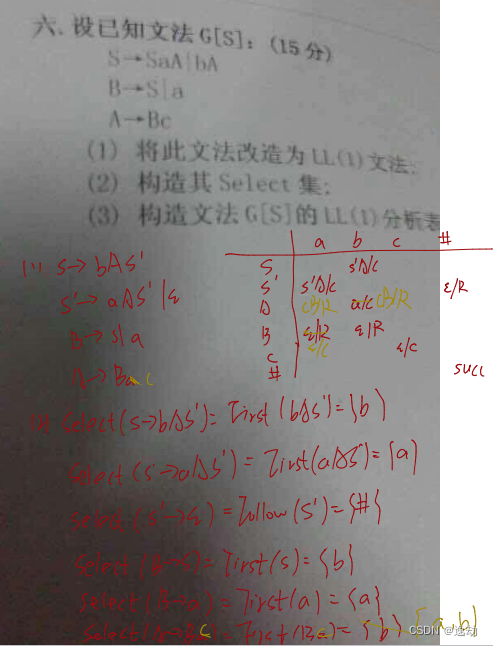 六. 设已知文法 G[S]: (15分)
S→SaA|bA
B→S|a
A→Bc
(1) 将此文法改造为LL(1)文法;
(2) 构造其Select集;
(3) 构造文法G[S]的LL(1)分析表
a b c #
(1) S→bAS'
S S'A/C
S'→aAS'|ε
S' S'A/C ε/R
A CB/R a/C CB/R
B→S|a
B ε/R ε/R
ε/C
C ε/C
# SUCC
Select(S→bAS')=First(bAS')={b}
Select(S'→aAS')=First(aAS')={a}
Select(S'→ε)=Follow(S')={#}
Select(B→S)=First(S)={b}
Select(B→a)=First(a)={a}
=First(Bc)={b} {a,b}
CSDN @逸动